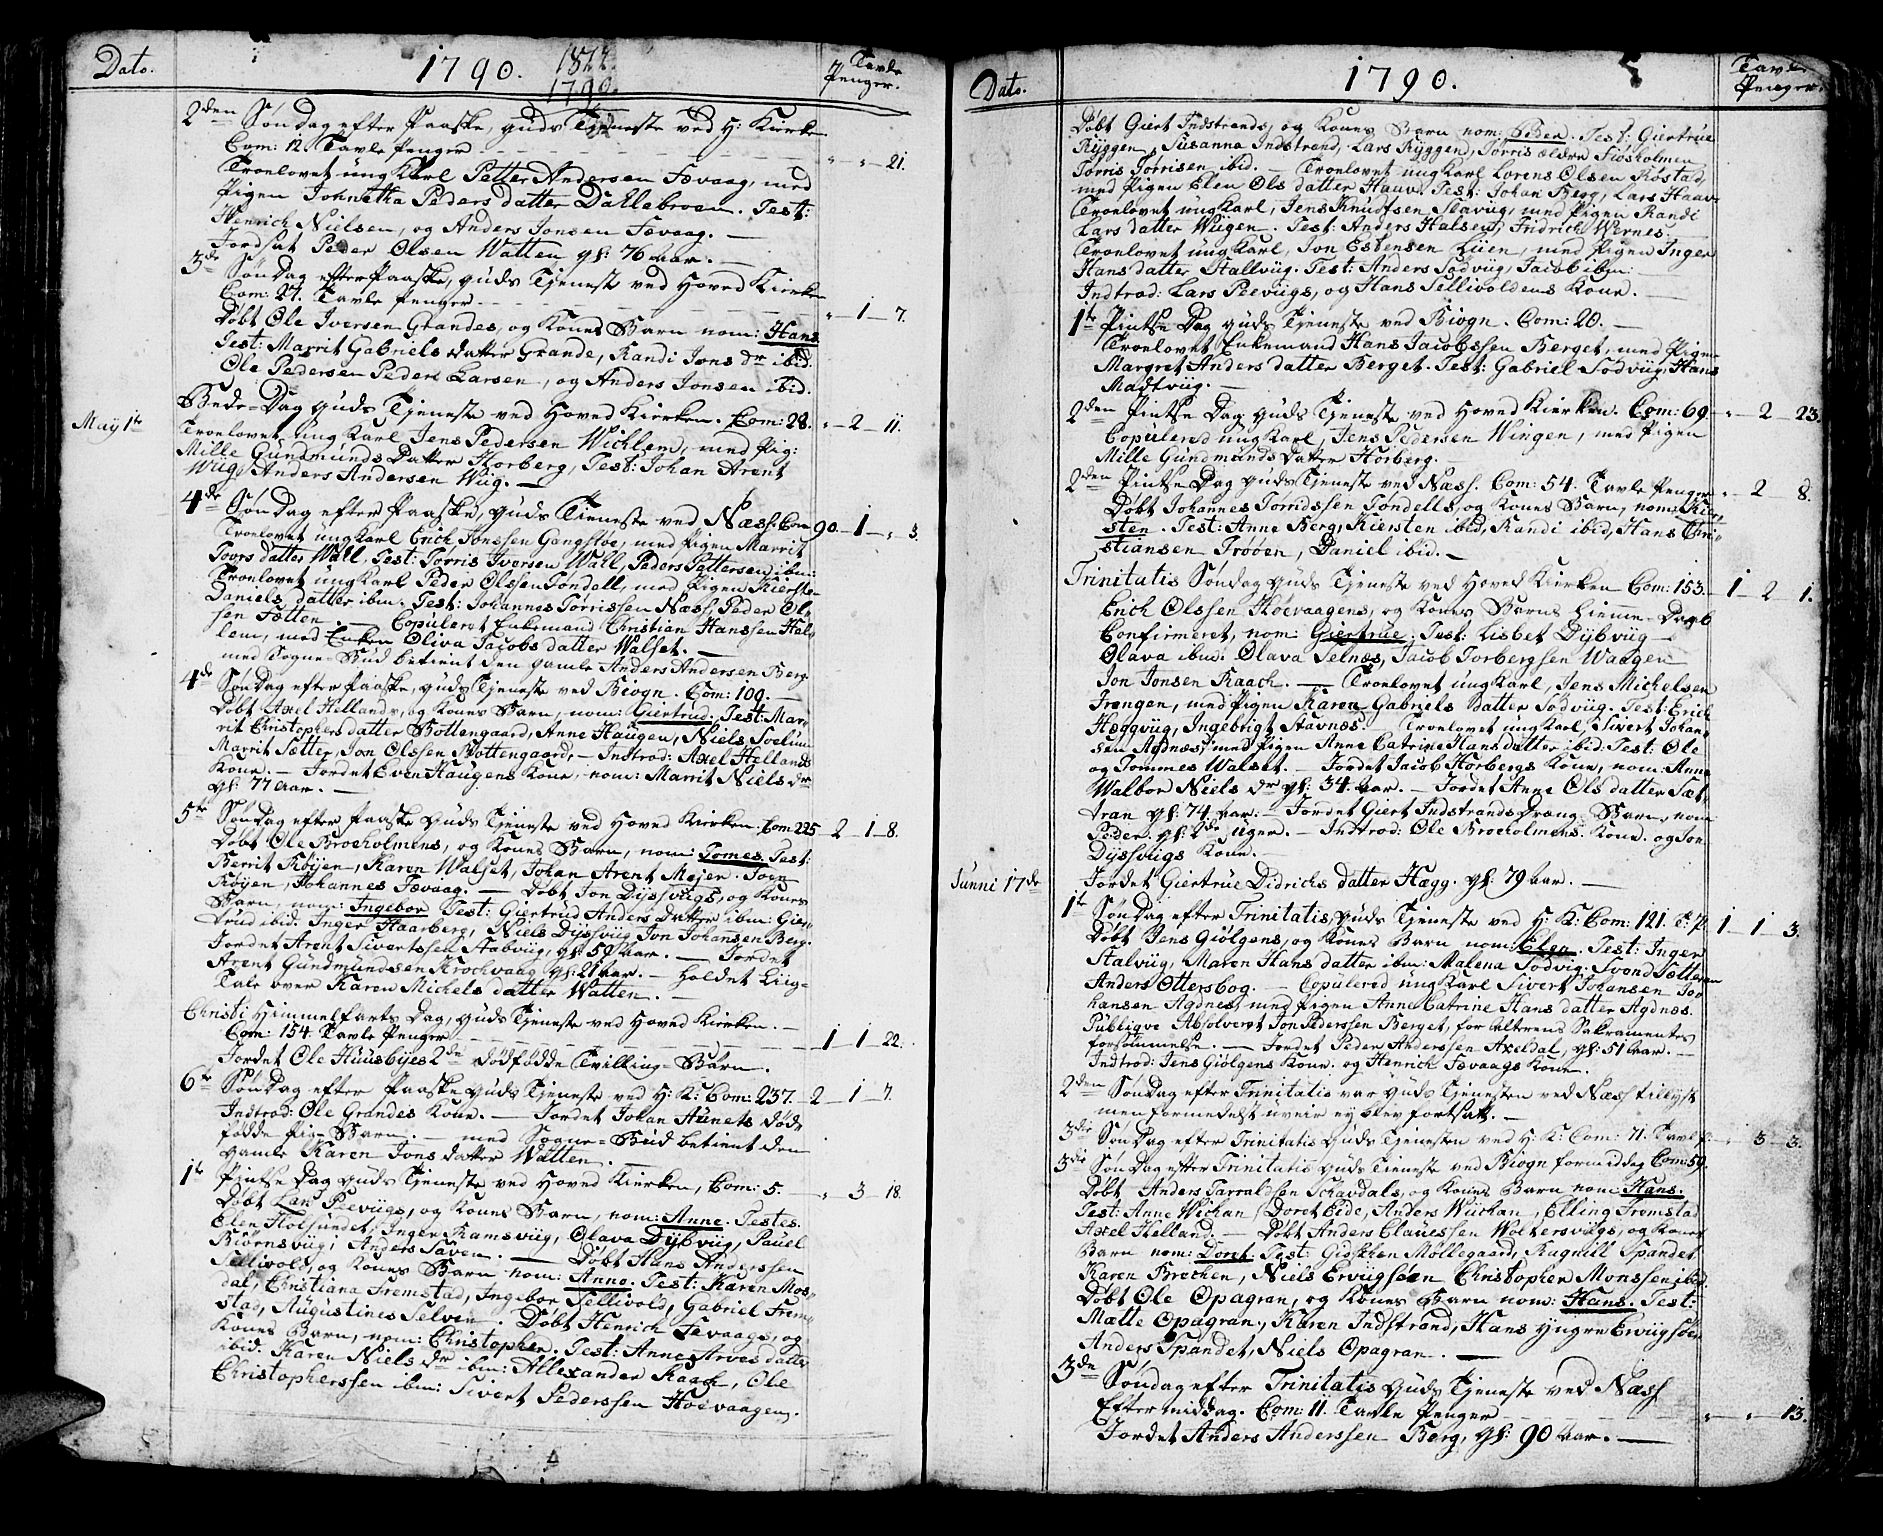 Dato. 1790. Tavle Penger.
2den Søndag efter Paaske, Guds Tjeneste ved H: Kirken
Com: 12. Tavle Penger " " 21.
Troelovet ung Karl Petter Andersen Fævaag, med
Pigen Johnetha Peders datter Dahlebroen. Test:
Henrich Nielsen, og Anders Jonsen Fævaag. —
Jordsat Peder Olsen Watten gl: 76 aar. —
3de Søndag efter Paaske, Guds Tjeneste ved Hoved Kirken
Com: 27. Tavle Penger " 1 7.
Døbt Ole Iversen Grandes, og Kones Barn nom: Hans.
Test: Marrit Gabriels datter Grande, Randi Jons dr ibid.
Ole Pedersen Peder Larsen, og Anders Jonsen ibid.
May 1te Bede-Dag Guds Tjeneste ved Hoved Kierken. Com: 28. " 2 11.
Troelovet ung Karl Jens Pedersen Wichlem, med Pig:
Mille Gundmunds Datter Horberg, Test: Johan Arent
Wiig, Anders Andersen Wiig. —
4de Søndag efter Paaske, Guds Tieneste ved Næss. Com 90 1 " 3.
Troelovet ung Karl Erich Jonssen Gangstøe, med Pigen Marrit
Toors datter Wall, Test: Tørris Iversen Wall, Peders Pattersen ibm:
Troelovet ung Karl Peder Olssen Tøndell, med Pigen Kierste
Daniels datter ibm. Test: Johannes Tørrissen Næss, Peder Ol-
sen Sætten. — Copuleret Enkemand Christian Hanssen Hal-
lem, med Enken Oliva Jacobs datter Walset. —
med Sogne-Bud betient den gamle Anders Andersen Berg
4de Søndag efter Paaske, Guds Tjeneste ved Biogn. Com: 100. —
Døbt Axel Hellands, og Kones Barn, nom: Giertrud: Test: Mar-
rit Christophers datter Bottengaard, Anne Haugen, Niels Soelium
Marrit Sætter, Jon Olssen Bottengaard, — Introd: Axel Hellands
Kone. — Jordet Even Haugens Kone, nom: Marrit Niels dr
gl: 77 aar. —
5te Søndag efter Paaske Guds Tjeneste ved Hoved Kirken. Com 225 2 1 8.
Døbt Ole Broeholmens, og Kones Barn, nom: Tomes. Test:
Berrit Røyen, Karen Walset, Johan Arent Mejer. Joen
Røyen, Johannes Fævaag. — Døbt Jon Dijssvigs, og Kones
Barn, nom: Ingebor Test: Giertrud Anders Datter ibm: Gier-
trud ibid. Inger Haarberg, Niels Dijssviig Jon Johansen Berg.
Jordet Arent Sivertssen Stabviig, gl: 59 aar. — Jordet
Arent Gundmundsen Krochvaag gl: 21 aar. — Holdet Liig-
Tale over Karen Michels datter Watten. —
Christi Himmelfarts Dag, Guds Tjeneste ved Hoved Kirken. —
Com: 154. Tavle Penger 1 1 22.
Jordet Ole Huusbyes 2de dødfødde Tvilling-Børn.
6te Søndag efter Paaske Guds Tjeneste ved H: K: Com: 237. 2 1 7.
Introd: Ole Grandes Kone. — Jordet Johan Hunets død-
fødde Pig-Barn. — med Sogne-Bud betient den
gamle Karen Jons datter Watten.
1te Pintse Dag Guds Tjeneste ved Hoved Kierken, Com: 5. " 3 18.
Døbt Lars Peeviigs, og Kones Barn, nom: Anne. Testes.
Elen Holsundet, Inger Ramsviig, Olava Dybviig, Pauel
Biörnsviig, Anders Saven. — Døbt Hans Anderssen
Sellivold, og Kones Barn nom: Anne. Test: Karen Mos-
dal, Christiana Fremstad, Ingebor Sellivold, Gabriel Frem-
stad, Augustines Selven. Døbt Henrich Fævaags, og
Kones Barn, nom: Christopher. Test: Anne Arves datter
ibid. Karen Niels dr ibm: Allexander Raach, Ole
Christopherssen ibm: Sivert Pederssen Hoevaagen.
Dato. 1790. Tavle Penger.
Døbt Giert Indstrands, og Kones Barn nom: Test: Giertrue
Ryggen, Susanna Indstrand, Lars Ryggen, Tørris ældre Fiosholmen
Tørris Tørrisen ibid. — Troelovet ung Karl Lorens Olsen Røstad,
med Pigen Elen Ols datter Haav. Test: Johan Berg, Lars Haav
Troelovet ung Karl, Jens Knudtsen Slaviig, med Pigen Randi
Lars datter Wiigen. Test: Anders Halsen, Fridrich Wernes.
Troelovet ung Karl, Jon Esbensen Lüen, med Pigen Inger
Hans datter Stallviig. Test: Anders Sodviig, Jacob ibm: —
Introd: Lars Peeviigs, og Hans Sellivoldens Kone. —
1te Pintse Dag Guds Tjeneste ved Biogn. Com: 20. —
Troelovet Enkemand Hans Jacobssen Berget, med Pigen
Margret Anders datter Berget. Test: Gabriel Sodviig, Hans
Madtviig. —
2den Pintse Dag Guds Tjeneste ved Hoved Kierken. Com: 69. " 2 23.
Copulered ung Karl, Jens Pedersen Wingen, med Pigen
Mille Gundmunds datter Horberg. —
2den Pintse Dag Guds Tjeneste ved Næss. Com: 54. Tavle Penger " 2 8.
Døbt Johannes Torndssen Tøndells, og Kones Barn, nom: Kier-
sten. Test: Anne Berg, Kiersten ibid, Randi ibid, Hans Chri-
stiansen Trøoen, Daniel ibid. —
Trinitatis Søndag Guds Tjeneste ved Hoved Kierken Com: 153. 1 2 1.
Erich Olssen Høevaagens, og Kones Barns hieme-Daab
Confirmeret, nom: Giertrue: Test: Lisbet Dybviig —
Olava ibm: Olava Selnæs, Jacob Torbergsen Waagen
Jon Jonsen Raach. — Troelovet ung Karl, Jens Michelsen
Trengen, med Pigen Karen Gabriels datter Sodviig. Test: Erich
Heggviig, Ingebrigt Stavnæs. — Troelovet ung Karl, Sivert Johan-
sen Agdnæs, med Pigen Anne Catrine Hans datter ibid: Test: Ole
og Tommes Walset. — Jordet Jacob Horbergs Kone, nom: Anne
Walbor Niels dr gl: 34. aar. — Jordet Anne Ols datter Sæt-
tran gl: 74. aar. — Jordet Giert Indstrands Dreng Barn, nom
Peder. gl: 2de Uger. — Introd: Ole Broeholmens Kone. og Jon
Dijssviigs Kone. —
Junni 17de Jordet Giertrue Didrichs datter Hægg. gl: 79 aar. —
1te Søndag efter Trinitatis, Guds Tjeneste ved H: K: Com: 121. T: P: 1 1 3.
Døbt Jens Giölgens, og Kones Barn nom: Elen. Test: Inger
Stalviig, Maren Hans datter ibm: Malena Sodvig. Svend Sætteren
Anders Ottersbog. — Copulered ung Karl Sivert Johansen Jo-
hansen Agdnes, med Pigen Anne Catrine Hans datter Agdnæs.
Publiqve Absolveret Jon Pederssen Berget, for Alterens Sakramentes
forsømmelse. — Jordet Peder Anderssen Axeldal, gl: 51 aar. —
Indtrod: Jens Giölgens Kone. og Henrich Fævaags Kone.
2den Søndag efter Trinitatis var Guds Tjenesten ved Næss tillyst
men formedelst uveir ey blev fortsatt. —
3die Søndag efter Trinitatis Guds Tjenesten ved H: K: Com: 71. Tavl P: " 3 3.
3die Søndag efter Trinitatis Guds Tieneste ved Biogn formiddag Com: 59.
Døbt Anders Tarraldsen Schavdals, og Kones Barn nom: Hans.
Test: Anne Wichan, Doret Eide, Anders Wichan, Elling Fremstad
Axel Helland. — Døbt Anders Clauessen Woltersviigs, og Kones
Barn nom: Doret: Test: Gidsken Møllegaard, Rugnill Spandet
Karen Brechen, Niels Erviigsøen Christopher Monssen ibid
Døbt Ole Opagran, og Kones Barn nom: Hans. Test:
Mætte Opagran, Karen Indstrand, Hans Yngre Erviigsøen
Anders Spandet, Niels Opagran. —
3de Søndag efter Trinitatis Guds Tjeneste ved Næss
Efter middag. Com: 11. Tavle Penger " " 13.
Jordet Anders Anderssen Berg, gl: 90 aar. —